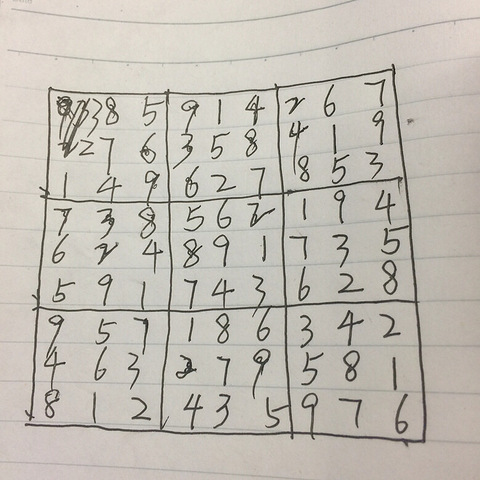 3 8 5 9 1 4 2 6 7
2 7 6 3 5 8 4 1 9
1 4 9 6 2 7 8 5 3
7 3 8 5 6 2 1 9 4
6 2 4 8 9 1 7 3 5
5 9 1 7 4 3 6 2 8
9 5 7 1 8 6 3 4 2
4 6 3 2 7 9 5 8 1
8 1 2 4 3 5 9 7 6